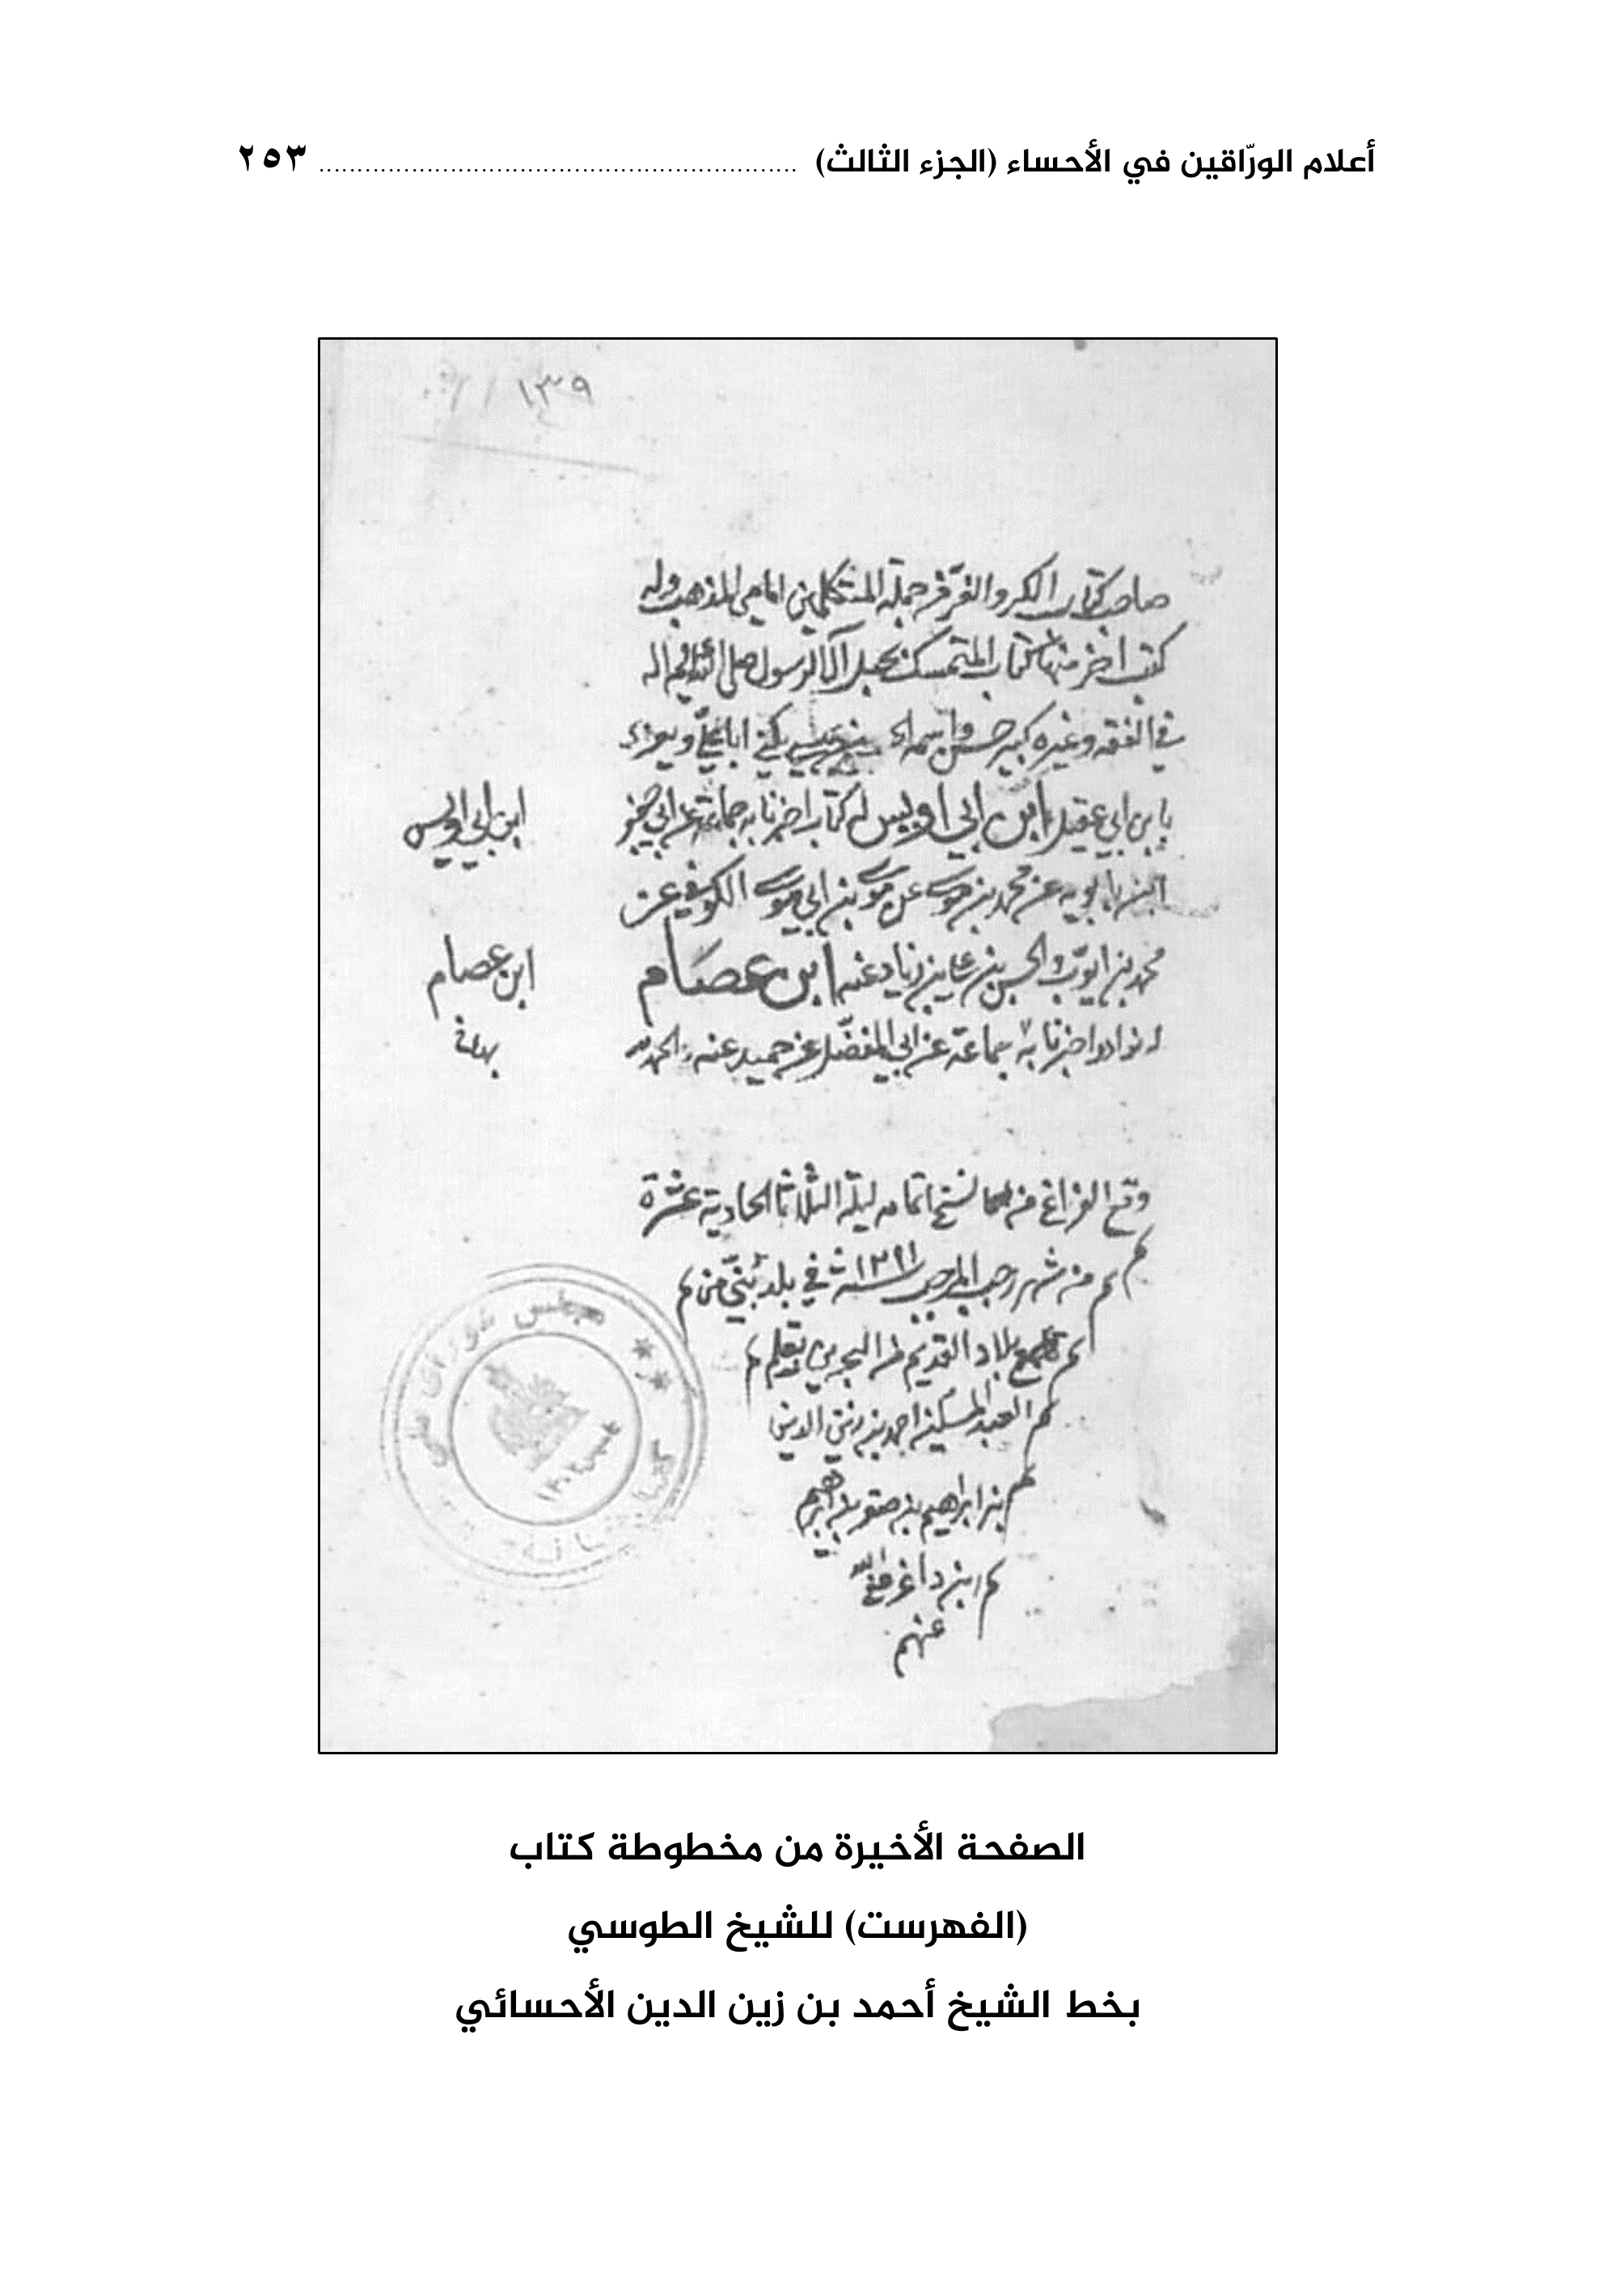 أعلام الورّاقين في الأحساء (الجزء الثالث) ............................................................... ٢٥٣
١٣٩
صاحب كتاب الكر والفرّ من جملة المتكلمين امامي المذهب وله
كتب اخر منها كتاب المتمسك بحبل آل الرسول صلى الله عليه واله
في الفقه وغيره كبير حسن واسمه الحسن بن عيسى يكنى ابا عليّ ويعرف
بابن ابي عقيل ابن ابي اويس له كتاب اخبرنا به جماعة عن ابي جعفر
ابن ابي اويس
ابن بابويه عن محمد بن موسى عن موسى بن ابي موسى الكوفي عن
محمد بن ايوب والحسن بن علي بن زياد عنه ابن عصام
ابن عصام
له نوادر اخبرنا به جماعة عن ابي المفضّل عن حميد عنه والحمد لله
وقع الفراغ من نسخ تمامه ليلة الثلاثا الحادية عشرة
من شهر رجب المرجب سنة في بلد بُنيّ من
بلاد القديم من البحرين بقلم
العبد المسكين احمد بن زين الدين
بن ابراهيم بن صقر بن ابراهيم
ابن داغر عفى الله
عنهم
مجلس شوراى ملي
الصفحة الأخيرة من مخطوطة كتاب
(الفهرست) للشيخ الطوسي
بخط الشيخ أحمد بن زين الدين الأحسائي